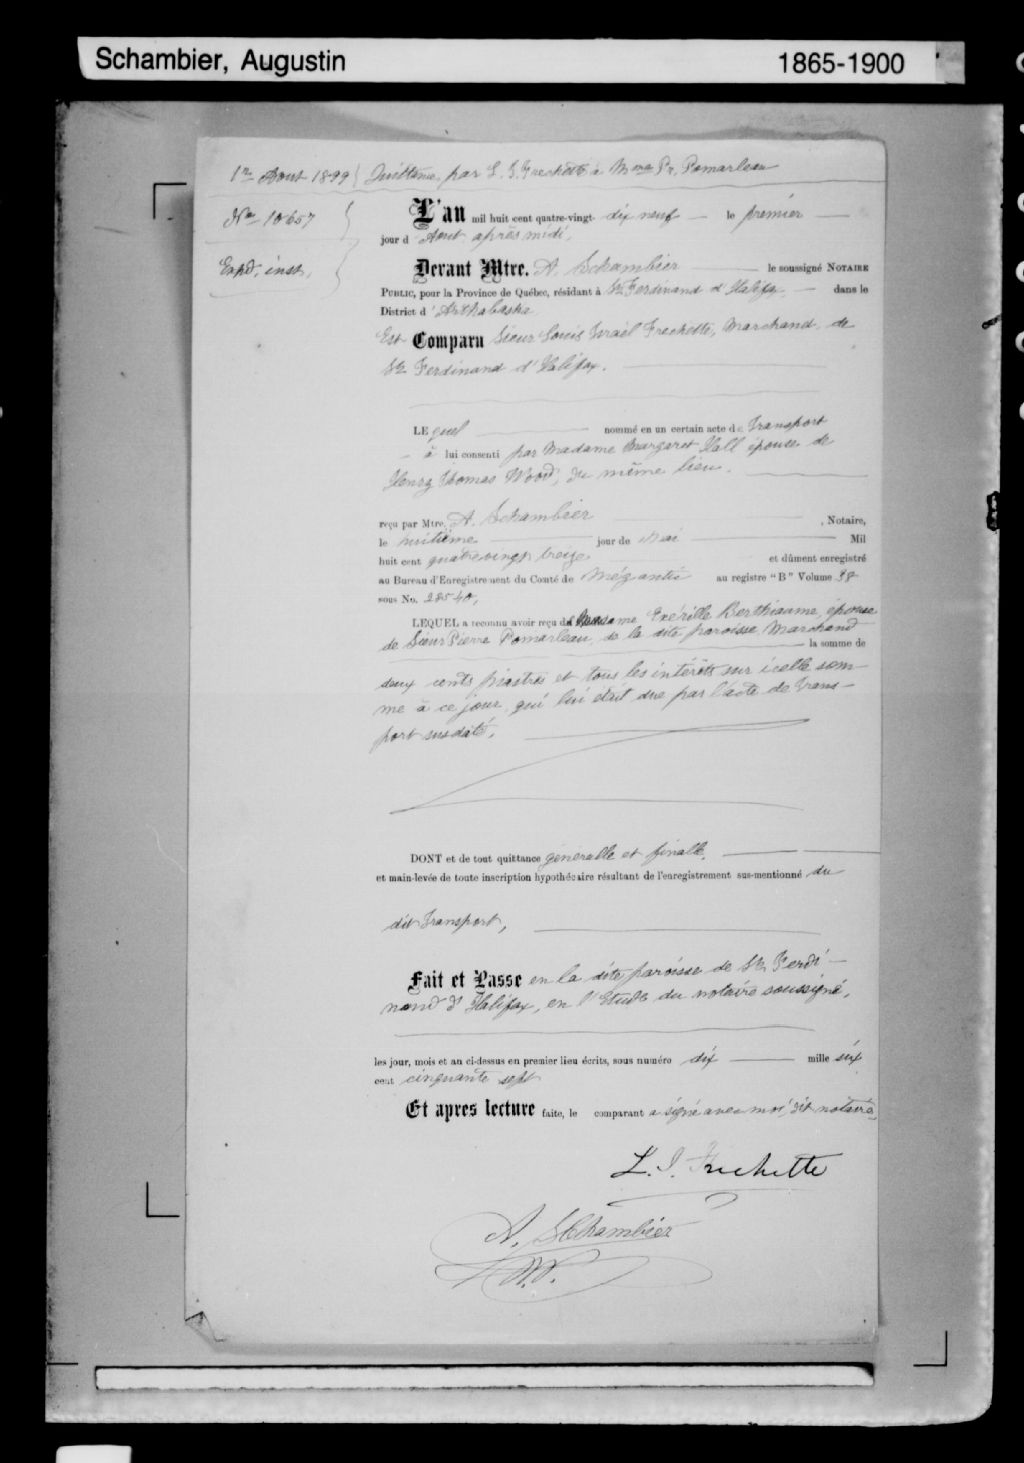 Schambier, Augustin 1865-1900
1er Aout 1899 Quittance par L. I. Frechette à Mme Pr. Pomarleau
No 10657
Expd. inst.
L'an mil huit cent quatre-vingt- dix neuf — le premier —
jour d'Aout après midi,
Devant Mtre. A. Schambier — le soussigné NOTAIRE
PUBLIC, pour la Province de Québec, résidant à St Ferdinand d'Halifax — dans le
District d'Arthabaska
Est Comparu Sieur Louis Israël Frechette, Marchand, de
St Ferdinand d'Halifax.
LEquel — nommé en un certain acte de Transport
à lui consenti par Madame Margaret Hall épouse de
Henry Thomas Wood, du même lieu.
reçu par Mtre. A. Schambier — , Notaire,
le huitième — jour de Mai — Mil
huit cent quatrevingt treize et dûment enregistré
au Bureau d'Enregistrement du Comté de Mégantic au registre "B" Volume 38
sous No. 28540,
LEQUEL a reconnu avoir reçu de Madame Exérille Berthiaume, épouse
de Sieur Pierre Pomarleau, de la dite paroisse, Marchand
— la somme de
deux cents piastres et tous les intérêts sur icelle som-
me à ce jour, qui lui était due par l'acte de Trans-
port susdaté,
DONT et de tout quittance générale et finale, —
et main-levée de toute inscription hypothécaire résultant de l'enregistrement sus-mentionné du
dit Transport, —
Fait et Passe en la dite paroisse de St Ferdi-
nand d'Halifax, en l'Etude du notaire soussigné,
les jour, mois et an ci-dessus en premier lieu écrits, sous numéro dix — mille six
cent cinquante sept
Et apres lecture faite, le comparant a signé avec moi, dit notaire.
L. I. Frechette
A. Schambier
N.P.